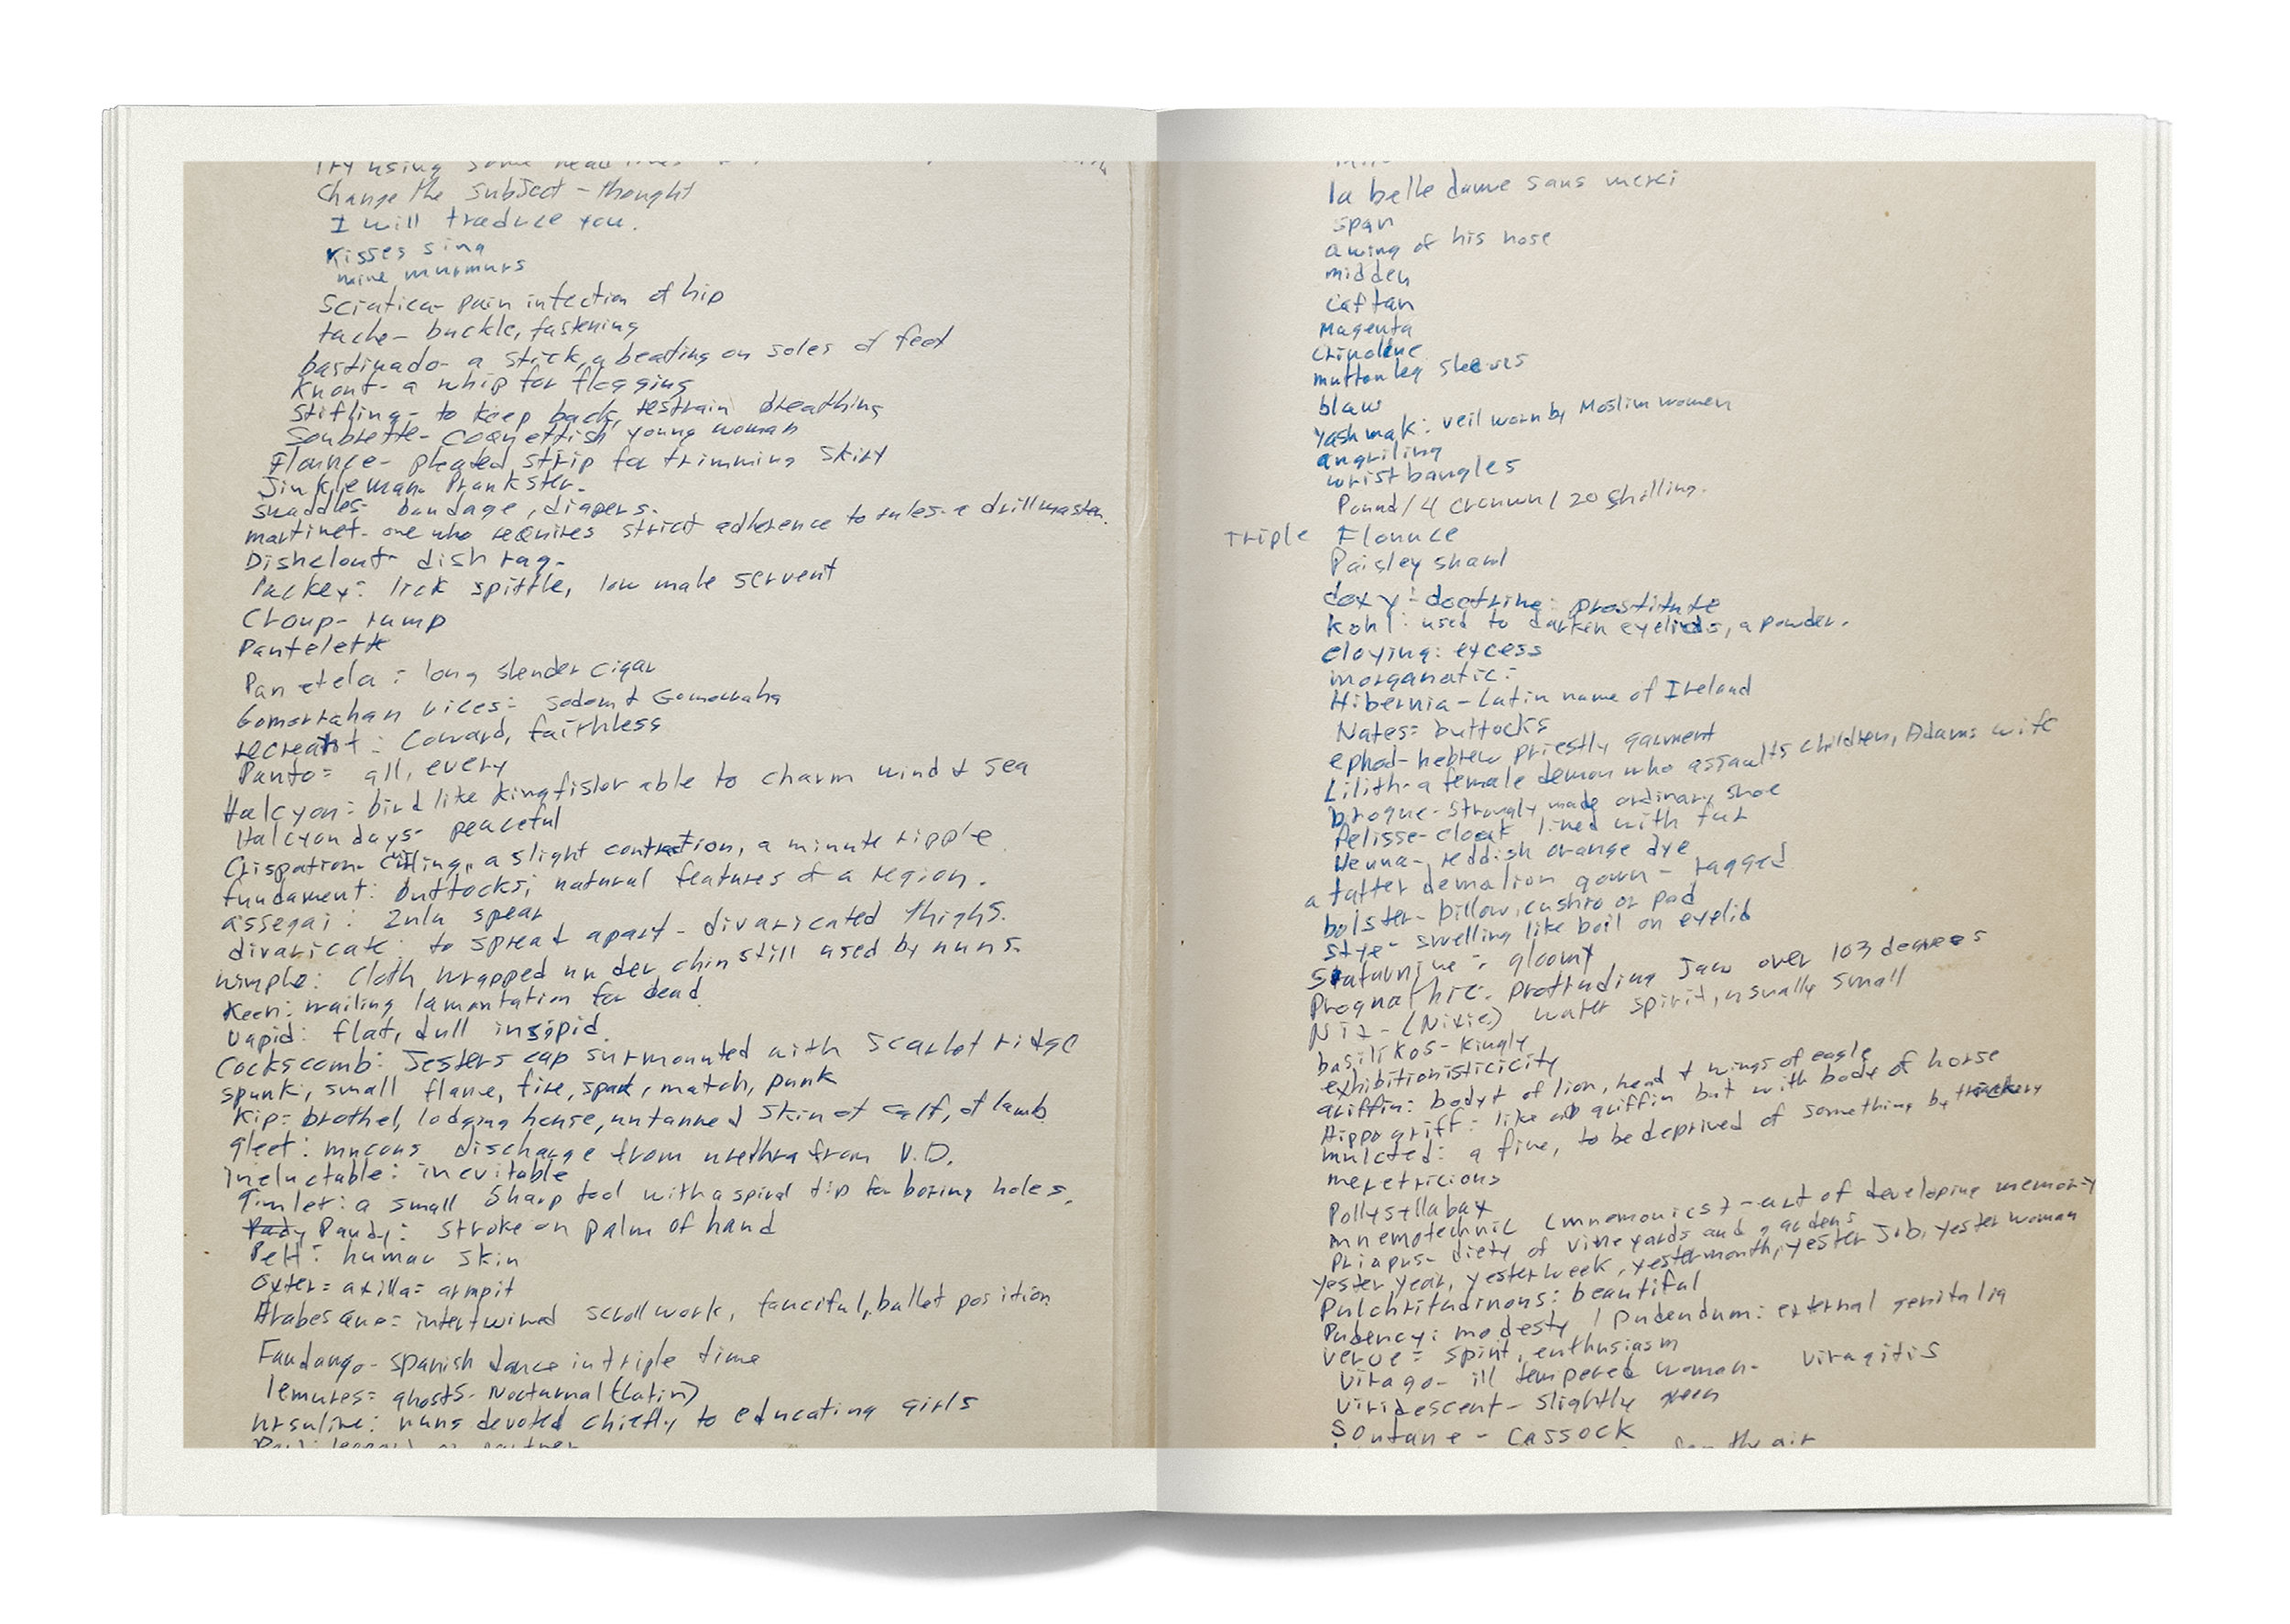 try using some
Change the subject - thought
I will traduce you.
Kisses sing
mine murmurs
Sciatica - pain infection of hip
tache - buckle, fastening
bastinado - a stick, a beating on soles of feet
Knout - a whip for flogging
Stifling - to keep back, restrain breathing
Soubrette - coquettish young woman
Flounce - pleated strip for trimming skirt
Jinkleman. Prankster.
swaddles - bandage, diapers.
martinet - one who requires strict adherence to rules - a drillmaster.
Dishclout - dish rag -
Packey: lick spittle, low male servent
Croup - rump
Pantelette
Panetela: long slender cigar
Gomorrahan vices: Sodom & Gomorraha
recreant: Coward, faithless
Panto = all, every
Halcyon: bird like kingfisher able to charm wind & sea
Halcyon days - peaceful
Crispation - curling, a slight contraction, a minute ripple.
fundament: buttocks; natural features of a region.
assegai: Zulu spear
divaricate: to spread apart - divaricated thighs.
wimple: cloth wrapped under chin still used by nuns.
Keen: wailing lamentation for dead.
Vapid: flat, dull insipid.
Cockscomb: Jesters cap surmounted with scarlet ridge
spunk: small flame, fire, spark, match, punk
Kip = brothel, lodging house, untanned skin of calf, of lamb
gleet: mucous discharge from urethra from V.D.
Ineluctable: inevitable
Gimlet: a small sharp tool with a spiral tip for boring holes.
Pandy: stroke on palm of hand
Pelt: human skin
Oxter = axilla = armpit
Arabesque = intertwined scrollwork, fanciful, ballet position
Fandango - spanish dance in triple time
lemures = ghosts - Nocturnal (Latin)
ursuline: nuns devoted chiefly to educating girls
Pard: leopard or partner
la belle dame sans merci
span
a wing of his nose
midden
Caftan
Magenta
Crinoline
muttonleg sleeves
blaw
Yashmak: veil worn by Moslim women
angriling
wrist bangles
Pound / 4 crown / 20 shilling.
Triple Flounce
Paisley shawl
doxy - doctrine: prostitute
Kohl: used to darken eyelids, a powder.
cloying: excess
morganatic:
Hibernia - Latin name of Ireland
Nates = buttocks
ephod - hebrew priestly garment
Lilith - a female demon who assaults children, Adams wife
brogue - strongly made ordinary shoe
Pelisse - cloak lined with fur
Henna - reddish orange dye
a tatter demalion gown - ragged
bolster - billow, cushio or pad
stye - swelling like boil on eyelid
Staturnine: gloomy
Prognathic. Protruding Jaw over 103 degrees
Nix - (Nixie) water spirit, usually small
basilikos - kingly
exhibitionisticicity
griffin: body of lion, head & wings of eagle
Hippogriff: like griffin but with body of horse
mulcted: a fine, to be deprived of something by trickery
meretricious
Pollysyllabax
mnemotechnic (mnemonics) - art of developing memory
Priapus - diety of vineyards and gardens
yester year, yesterweek, yestermonth, yester Job, yester woman
Pulchritudinous: beautiful
Pudency: modesty / Pudendum: external genitalia
verve = spirit, enthusiasm
Virago - ill tempered woman - Viragitis
Viridescent - slightly green
Soutane - CASSOCK